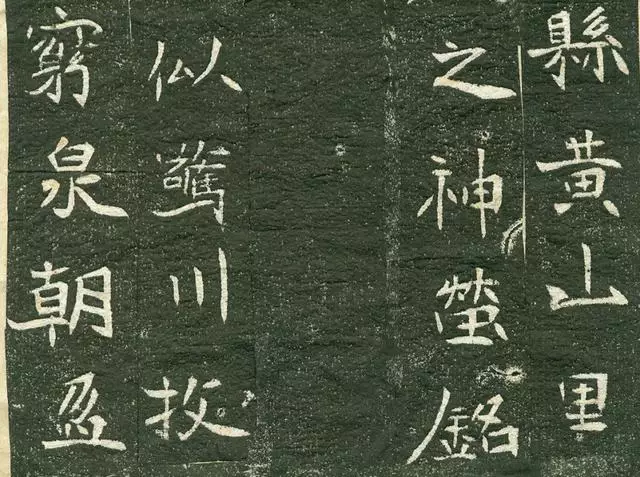 縣黃山里
之神塋銘
似驚川拔
窮泉朝盈